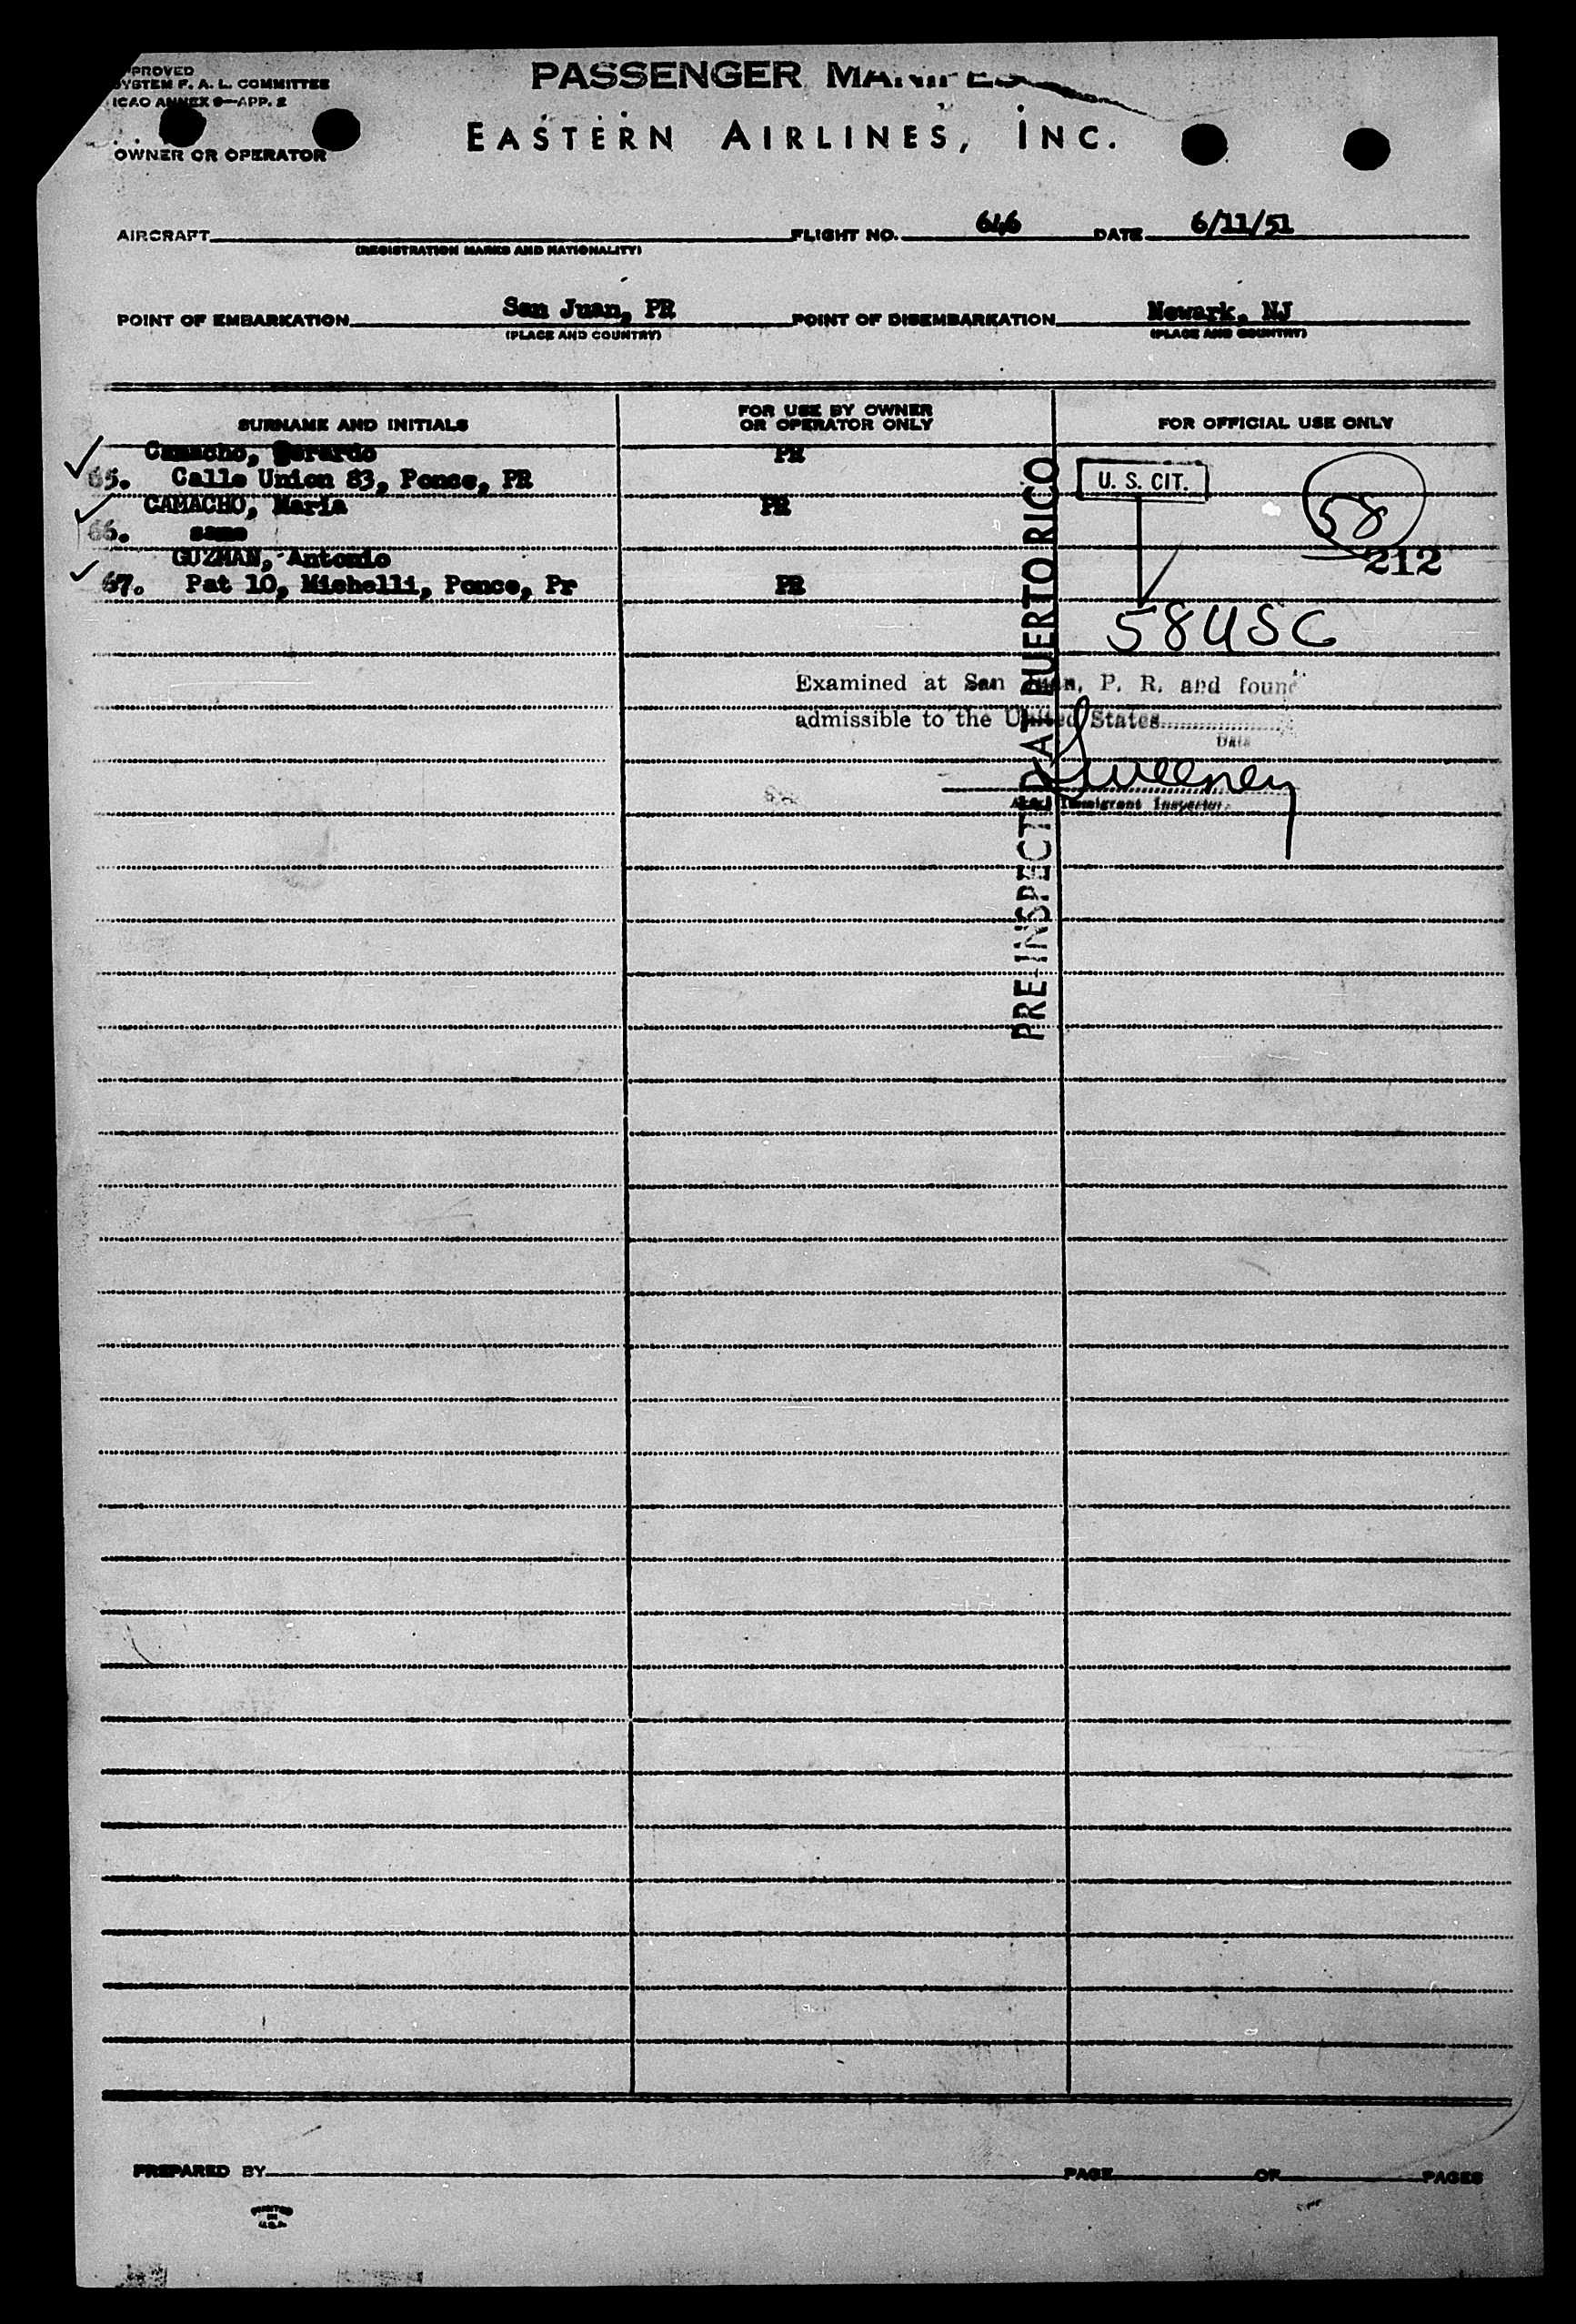 PROVED
SYSTEM F. A. L. COMMITTEE
ICAO ANNEX 9—APP. 2
OWNER OR OPERATOR
PASSENGER
EASTERN AIRLINES, INC.
AIRCRAFT
(REGISTRATION MARKS AND NATIONALITY)
FLIGHT NO. 646 DATE 6/11/51
POINT OF EMBARKATION San Juan, PR
(PLACE AND COUNTRY)
POINT OF DISEMBARKATION Newark, NJ
(PLACE AND COUNTRY)
SURNAME AND INITIALS
FOR USE BY OWNER
OR OPERATOR ONLY
FOR OFFICIAL USE ONLY
Camacho, Gerardo PR
65. Calle Union 83, Ponce, PR
U. S. CIT.
58
CAMACHO, Maria PR
66. same
212
GUZMAN, Antonio
67. Pat 10, Michelli, Ponce, Pr PR
58 USC
PRE-INSPECTED AT PUERTO RICO
Examined at San Juan, P. R. and found
admissible to the United States
Date
Sweeney
Immigrant Inspector.
PREPARED BY
PAGE OF PAGES
PRINTED
IN
U.S.A.